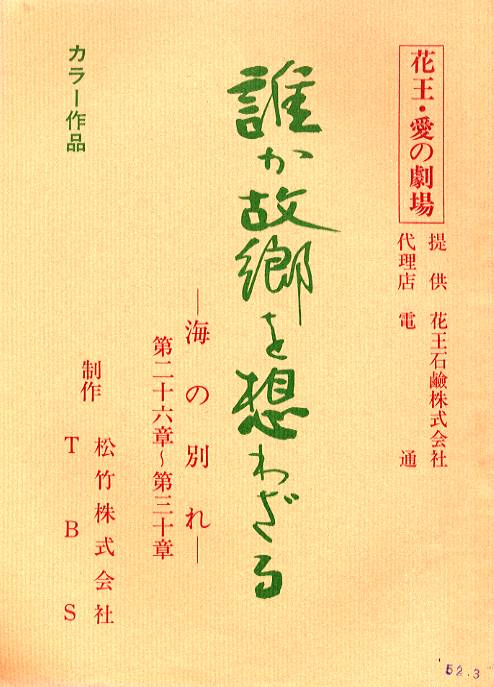 花王・愛の劇場
提供 花王石鹸株式会社
代理店 電通
誰か故郷を想わざる
―海の別れ―
第二十六章~第三十章
カラー作品
制作
松竹株式会社
TBS
52.3